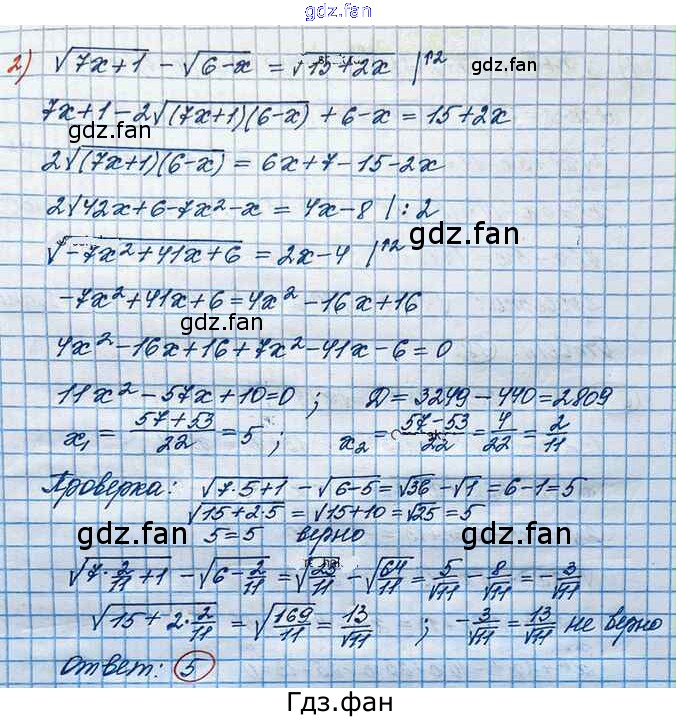 gdz.fan
2) √(7x+1) − √(6−x) = √(15+2x) |↑2
7x+1−2√((7x+1)(6−x)) + 6−x = 15+2x
gdz.fan gdz.fan
2√((7x+1)(6−x)) = 6x+7−15−2x
2√(42x+6−7x²−x) = 4x−8 | :2
gdz.fan
√(−7x²+41x+6) = 2x−4 |↑2
−7x²+41x+6=4x²−16x+16
gdz.fan
4x²−16x+16+7x²−41x−6=0
11x²−57x+10=0 ; D=3249−440=2809
x₁ = (57+53)/22 = 5 ; x₂ = (57−53)/22 = 4/22 = 2/11
Проверка: √(7·5+1) − √(6−5) = √36 − √1 = 6−1=5
√(15+2·5) = √(15+10) = √25 = 5
gdz.fan gdz.fan
5=5 верно
√(7·2/11+1) − √(6−2/11) = √(25/11) − √(64/11) = 5/√11 − 8/√11 = −3/√11
√(15+2·2/11) = √(169/11) = 13/√11 ; −3/√11 = 13/√11 не верно
gdz.fan gdz.fan
Ответ: 5
Гдз.фан